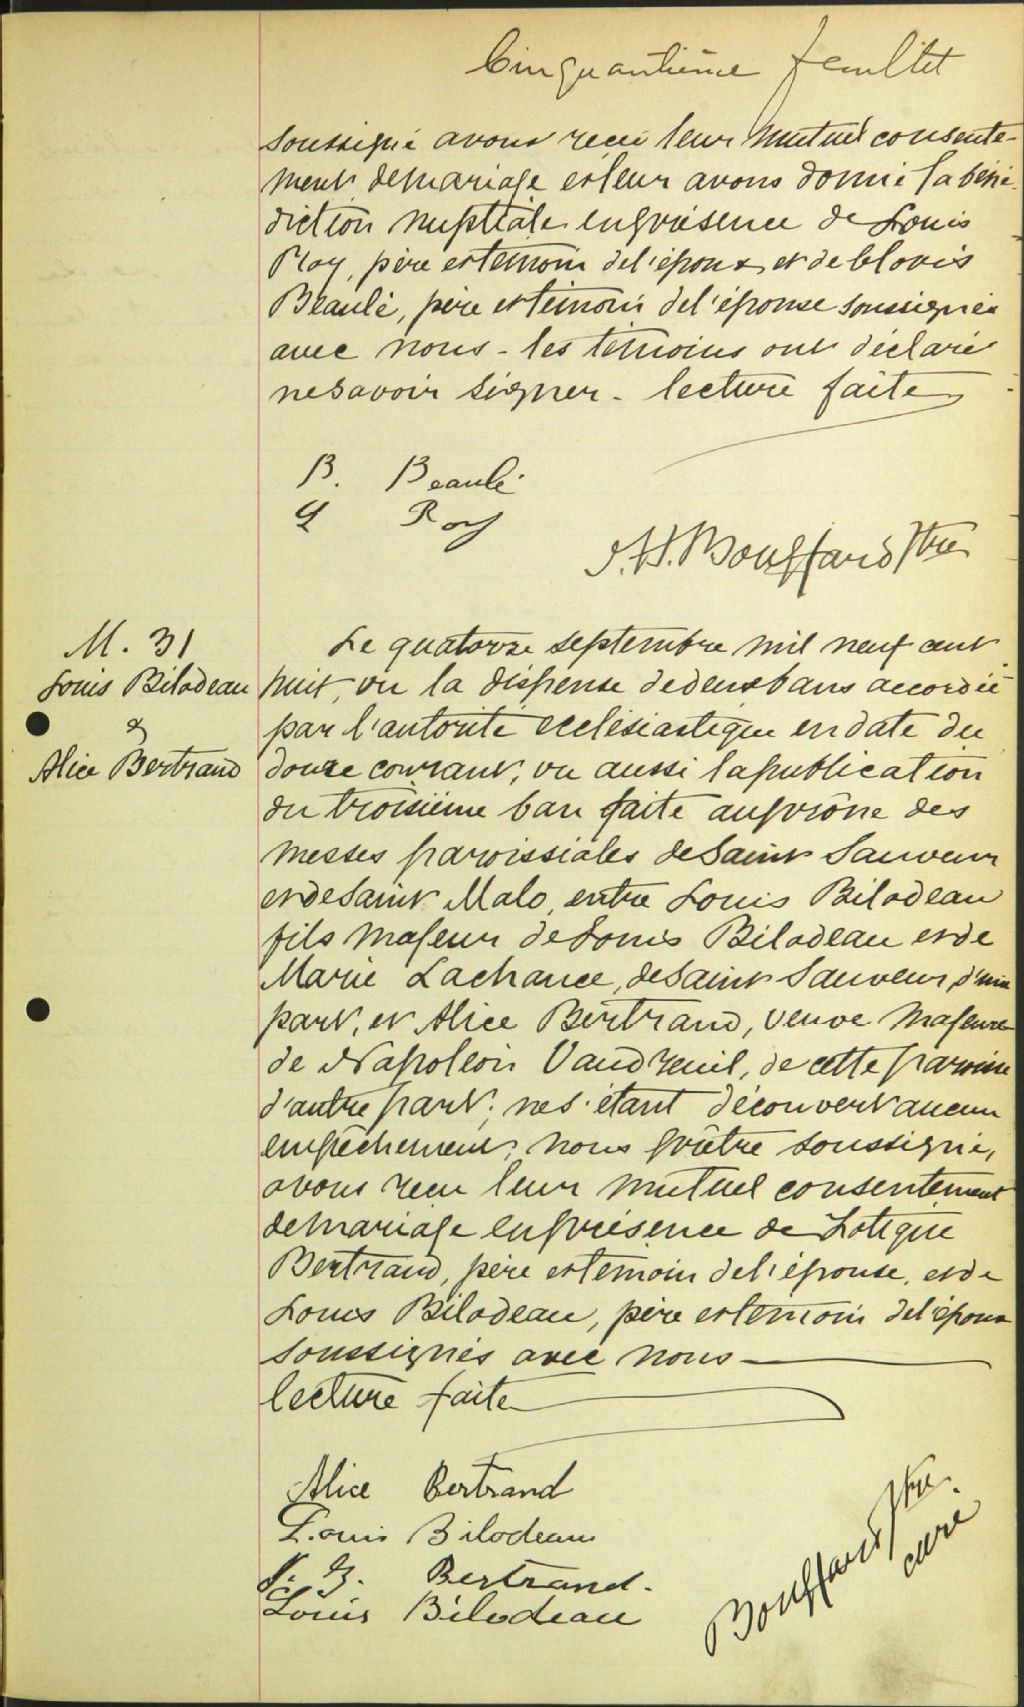 Cinquantième feuillet
soussigné avons recu leur mutuel consente-
ment de mariage et leur avons donné la béné-
diction nuptiale en présence de Louis
Roy, père et témoin de l'époux et de Clovis
Beaulé, père et témoin de l'épouse soussignés
avec nous - les témoins ont déclaré
ne savoir signer - lecture faite
B. Beaulé
Roy
J. H. Bouffard Ptre
M. 31
Louis Bilodeau
&
Alice Bertrand
Le quatorze septembre mil neuf cent
huit, vu la dispense de deux bans accordée
par l'autorité ecclésiastique en date du
douze courant, vu aussi la publication
du troisième ban faite au prône des
messes paroissiales de Saint Sauveur
et de Saint Malo, entre Louis Bilodeau
fils majeur de Louis Bilodeau et de
Marie Lachance, de Saint Sauveur, d'une
part, et Alice Bertrand, veuve majeure
de Napoléon Vaudreuil, de cette paroisse
d'autre part; ne s'étant découvert aucun
empêchement; nous prêtre soussigné,
avons recu leur mutuel consentement
de mariage en présence de Zotique
Bertrand, père et témoin de l'épouse, et de
Louis Bilodeau, père et témoin de l'époux
soussignés avec nous
lecture faite
Alice Bertrand
Louis Bilodeau
J. Z. Bertrand.
Louis Bilodeau
Bouffard Ptre
curé